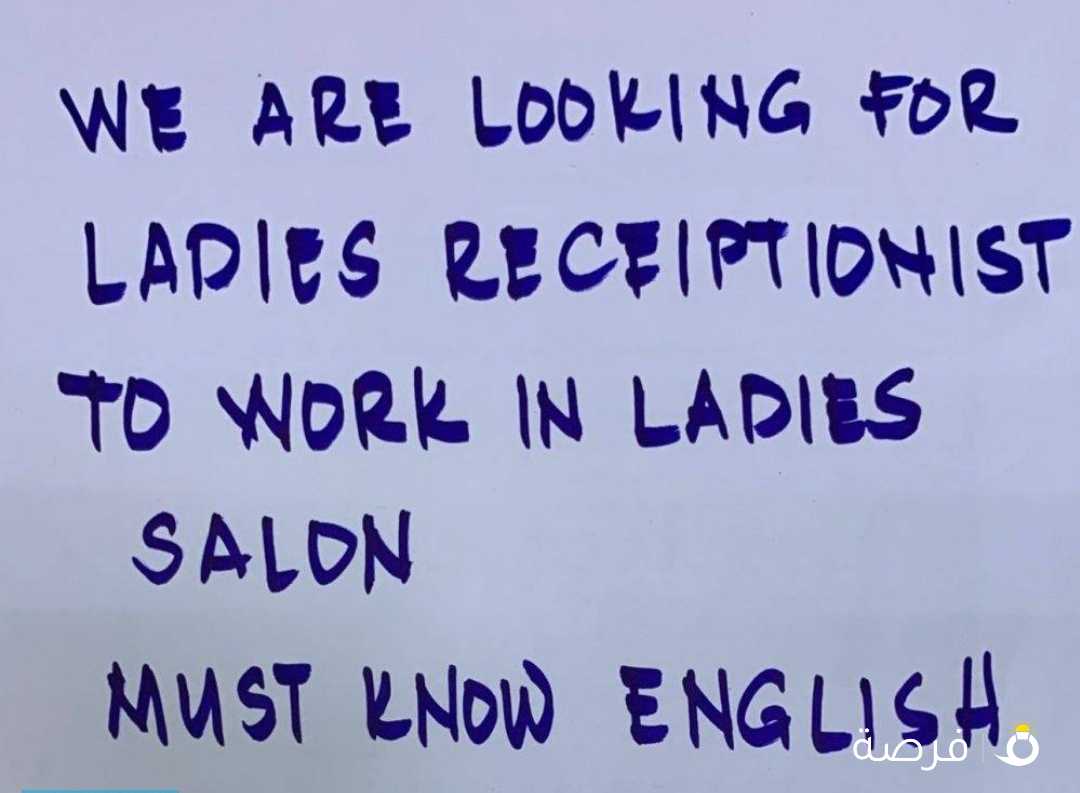 WE ARE LOOKING FOR
LADIES RECEIPTIONIST
TO WORK IN LADIES
SALON
MUST KNOW ENGLISH
فرصة